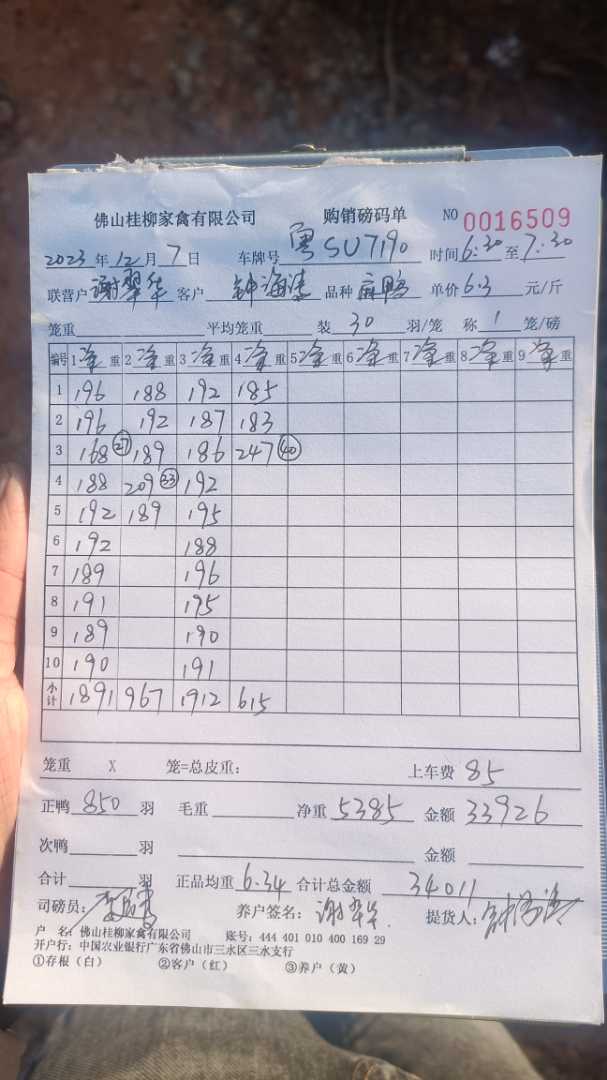 佛山桂柳家禽有限公司 购销磅码单 NO 0016509
2023年12月7日 车牌号 粤SU7190 时间6:30至7:30
联营户 谢翠华 客户 钟海清 品种 麻鸭 单价 6.3 元/斤
笼重 平均笼重 装 30 羽/笼 称 1 笼/磅
编号 1 净重 2 净重 3 净重 4 净重 5 净重 6 净重 7 净重 8 净重 9 净重
1 196 188 192 185
2 196 192 187 183
3 168 27 189 186 247 40
4 188 209 33 192
5 192 189 195
6 192 188
7 189 196
8 191 195
9 189 190
10 190 191
小计 1891 967 1912 615
笼重 X 笼=总皮重: 上车费 85
正鸭 850 羽 毛重 净重 5385 金额 33926
次鸭 羽 金额
合计 羽 正品均重 6.34 合计总金额 34011
司磅员: 养户签名: 谢翠华 提货人:
户 名: 佛山桂柳家禽有限公司 账号: 444 401 010 400 169 29
开户行: 中国农业银行广东省佛山市三水区三水支行
①存根(白) ②客户(红) ③养户(黄)